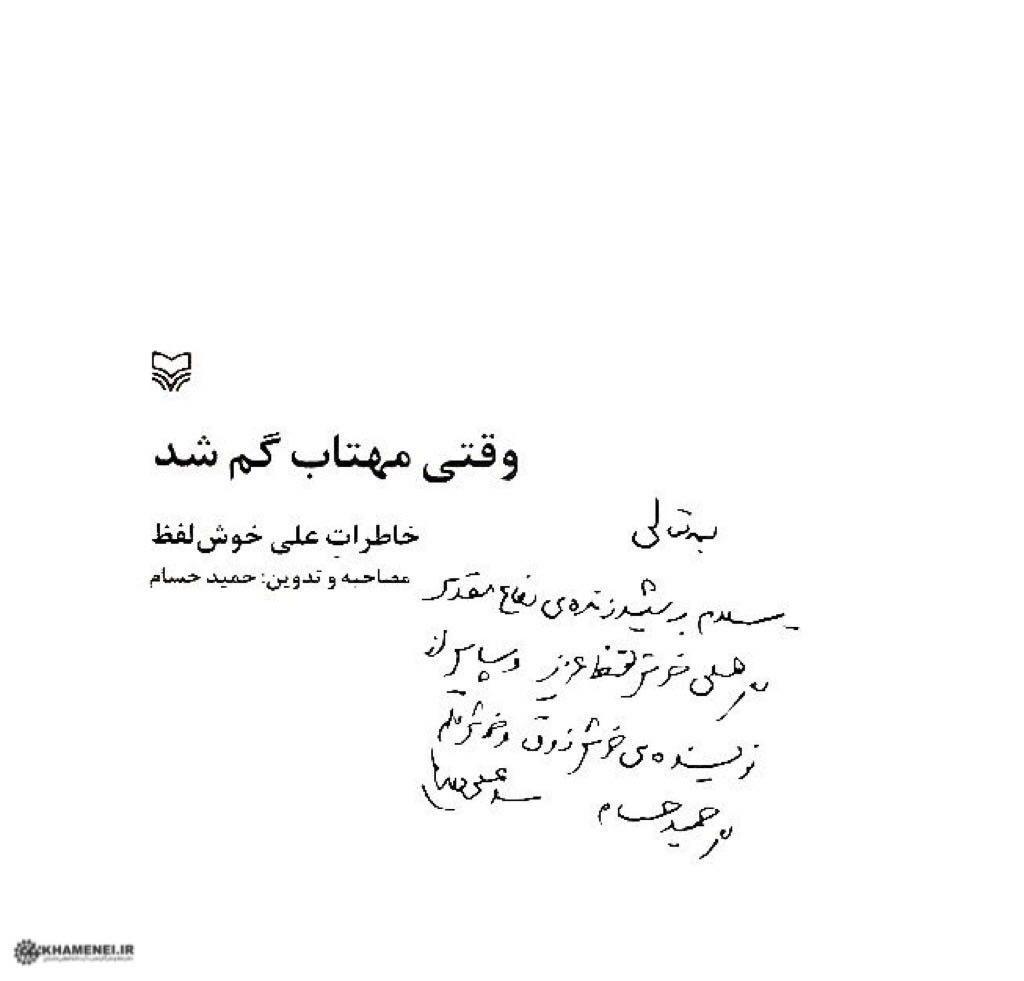 وقتی مهتاب گم شد
خاطراتِ علی خوش‌لفظ
مصاحبه و تدوین: حمید حسام
بسمه‌تعالی
سلام بر شهید زنده‌ی دفاع مقدس
علی خوش‌لفظ عزیز و سپاس از
نویسنده‌ی خوش ذوق و خوش قلم
حمید حسام
KHAMENEI.IR